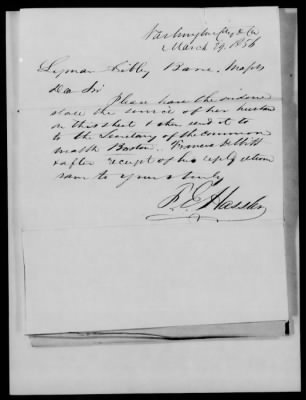 Washington City D C
March 29, 1856
Lyman Sibley Barre, Mass
Dear Sir
Please have the widow
state the service of her husband
on this sheet & then send it to
to the Secretary of the Common
wealth Boston. Francis DeWitt
& after receipt of his reply return
same to yours truly
F. E. Hassler